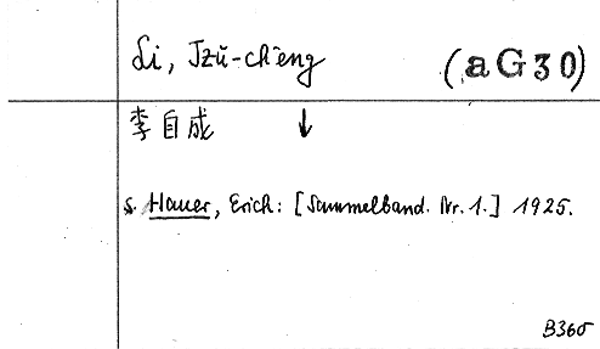 Li, Tzŭ-ch'eng (aG30)
李自成 ↓
s. Hauer, Erich: [Sammelband. Nr. 1.] 1925.
B365